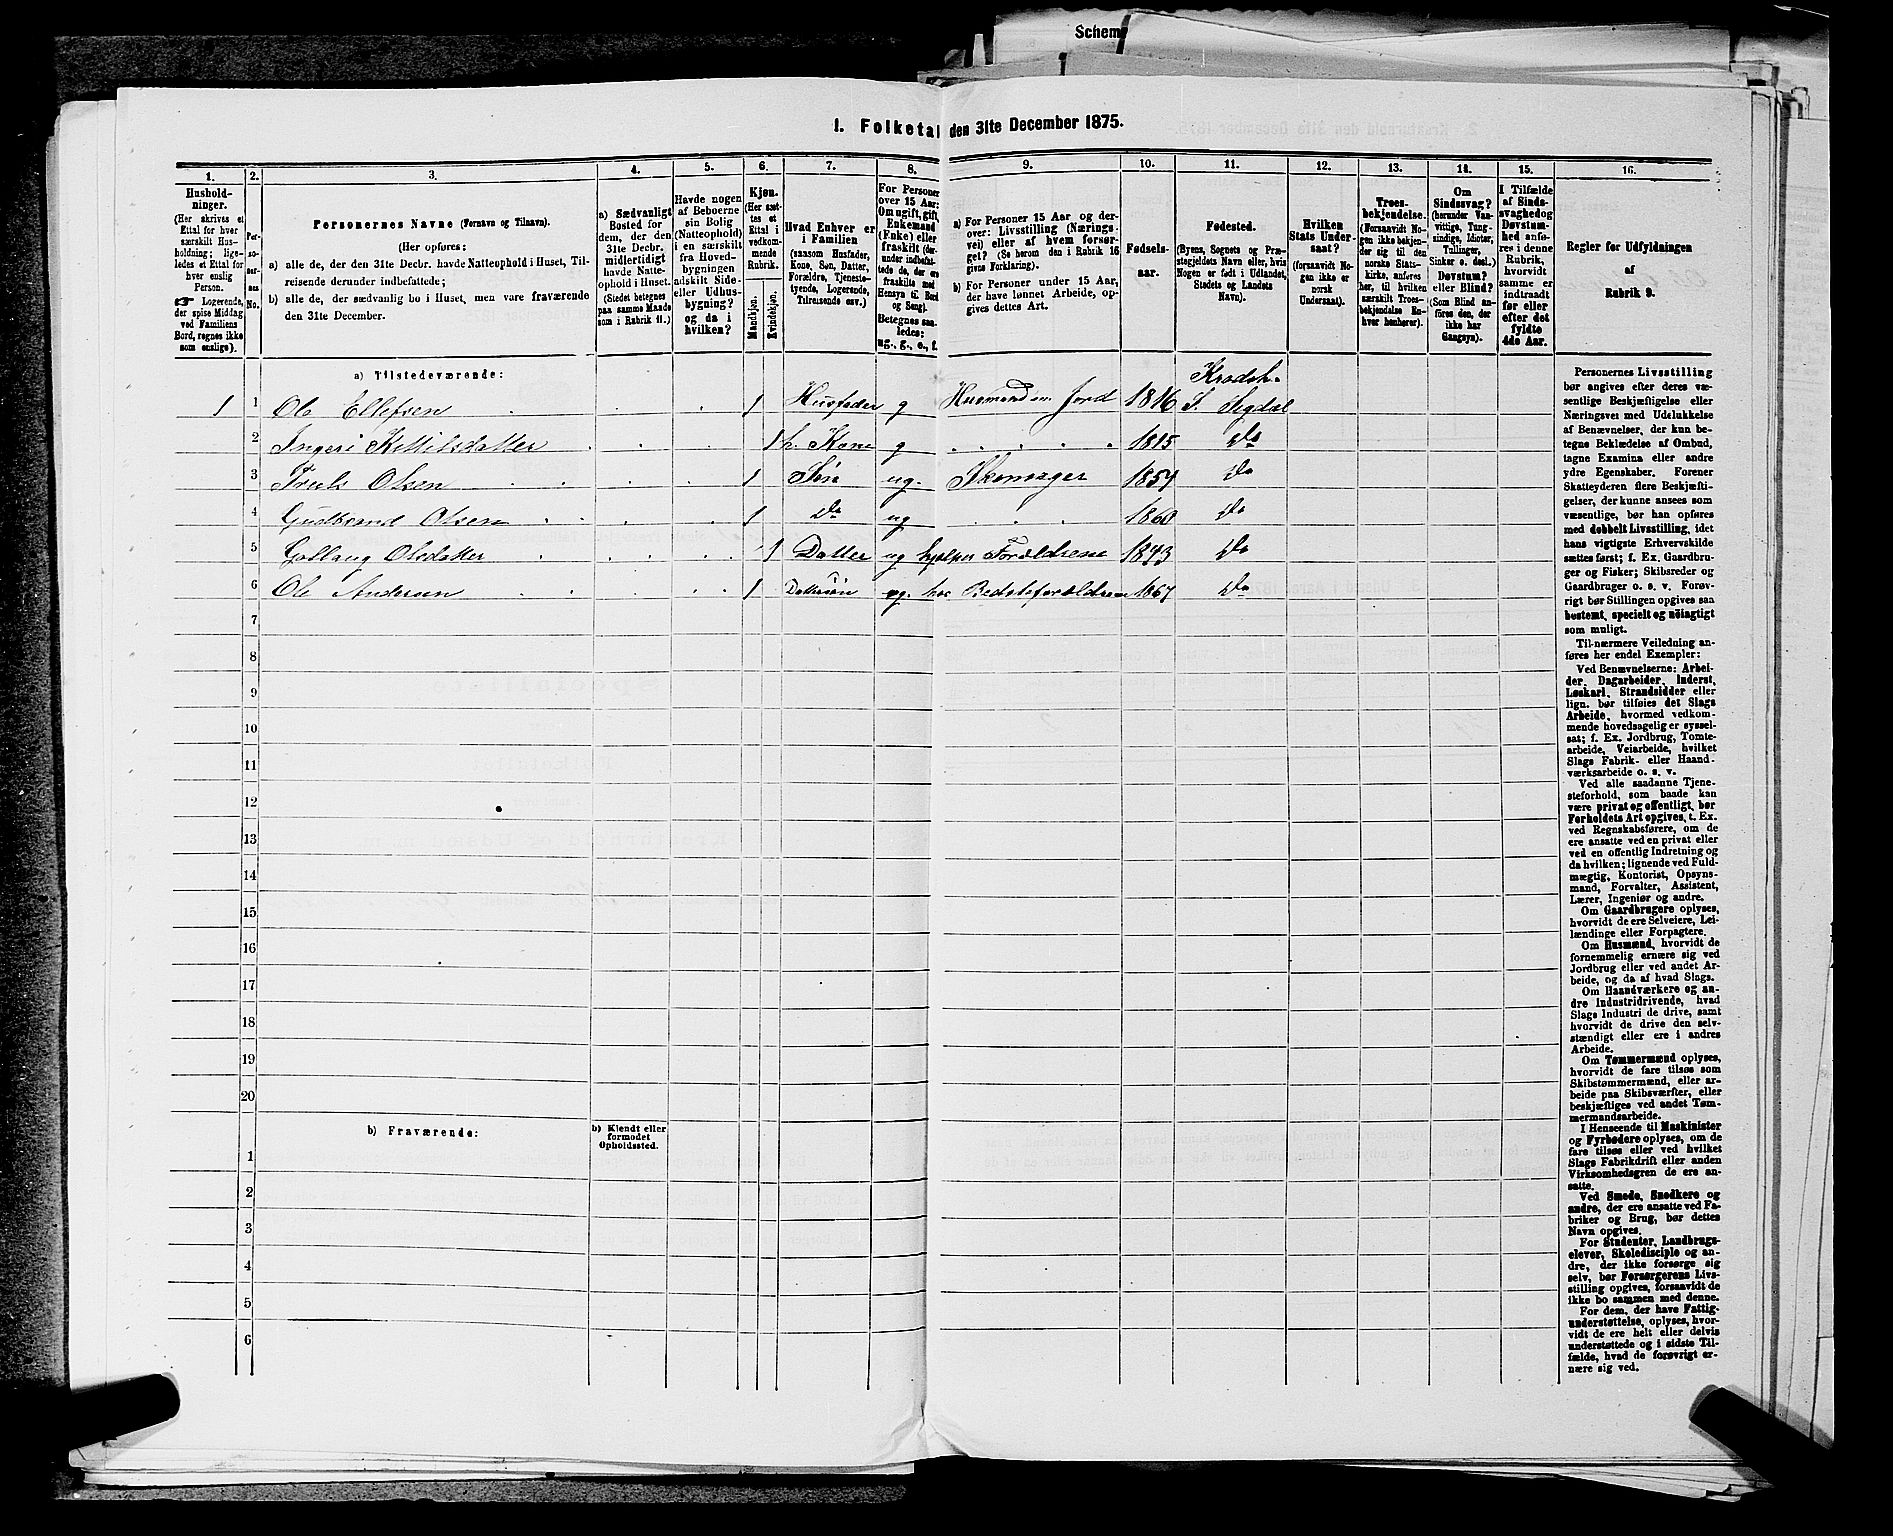 Schem
1. Folketal den 31te December 1875.
1. 2. 3. 4. 5. 6. 7. 8. 9. 10. 11. 12. 13. 14. 15. 16.
Hushold-
ninger.
(Her skrives et
Ettal for hver
særskilt Hus-
holdning; lige-
ledes et Ettal for
hver enslig
Person.
☞ Logerende,
der spise Middag
ved Familiens
Bord, regnes ikke
som enslige).
Per-
so-
ner-
nes
No.
Personernes Navne (Fornavn og Tilnavn).
(Her opføres:
a) alle de, der den 31te Decbr. havde Natteophold i Huset, Til-
reisende derunder indbefattede;
b) alle de, der sædvanlig bo i Huset, men vare fraværende
den 31te December.
a) Sædvanligt
Bosted for
dem, der den
31te Decbr.
midlertidigt
havde Natte-
ophold i Huset.
(Stedet betegnes
paa samme Maade
som i Rubrik 11.)
Havde nogen
af Beboerne
sin Bolig
(Natteophold)
i en særskilt
fra Hoved-
bygningen
adskilt Side-
eller Udhus-
bygning?
og da i
hvilken?
Kjøn.
(Her sæt-
tes et
Ettal i
vedkom-
mende
Rubrik.
Mandkjøn.
Kvindekjøn.
Hvad Enhver er
i Familien
(saasom Husfader,
Kone, Søn, Datter,
Forældre, Tjeneste-
tyende, Logerende,
Tilreisende osv.)
For Personer
over 15 Aar:
Om ugift, gift,
Enkemand
(Enke) eller
fraskilt (der-
under indbefat-
tede de, der ere
fraskilte med
Hensyn til Bord
og Seng).
Betegnes saa-
ledes:
ug., g., e., f.
a) For Personer 15 Aar og der-
over: Livsstilling (Nærings-
vei) eller af hvem forsør-
get? (Se herom den i Rubrik 16
givns Forklaring).
b) For Personer under 15 Aar,
der have lønnet Arbeide, op-
gives dettes Art.
Fødsels-
aar.
Fødested.
(Byens, Sognets og Præ-
stegjeldets Navn eller, hvis
Nogen er født i Udlandet,
Stedets og Landets
Navn).
Hvilken
Stats Under-
saat?
(forsaavidt No-
gen ikke er
norsk
Undersaat).
Troes-
bekjendelse.
(Forsaavidt No-
gen ikke bekjen-
der sig til den
norske Stats-
kirke, anføres
her, til hvilken
særskilt Troes-
bekjendelse En-
hver henhører).
Om
Sindssvag?
(herunder Van-
vittige, Tung-
sindige, Idioter,
Tullinger,
Sinker o. desl.)
Døvstum?
eller Blind?
(Som Blind an-
føres den, der
ikke har
Gangsyn).
I Tilfælde
af Sinds-
svaghed og
Døvstum-
hed anfø-
res i denne
Rubrik,
hvorvidt
samme er
indtraadt
før eller
efter det
fyldte
4de Aar.
Regler for Udfyldningen
af
Rubrik 9.
a) Tilstedeværende:
Kradsh.
1 1 Ole Ellefsen 1 Husfader g Husmand m. Jord 1816 S. Sigdal
2 Ingeri Kittilsdatter 1 h. Kone g 1815 Do
3 Truls Olsen 1 Søn ug. Skomager 1857 Do
4 Gudbrand Olsen 1 Do ug 1860 Do
5 Gollaug Olsdatter 1 Datter ug hjelper Forældrene 1843 Do
6 Ole Andersen 1 Dattersøn ug. hos Bedsteforældrene 1867 Do
7
8
9
10
11
12
13
14
15
16
17
18
19
20
b) Fraværende:
b) Kjendt eller
formodet
Opholdssted.
1
2
3
4
5
6
Personernes Livsstilling
bør angives efter deres væ-
sentlige Beskjæftigelse eller
Næringsvei med Udelukkelse
af Benævnelser, der kun be-
tegne Beklædelse af Ombud,
tagne Examina eller andre
ydre Egenskaber. Forener
Skatteyderen flere Beskjæfti-
gelser, der kunne ansees som
væsentlige, bør han opføres
med dobbelt Livsstilling, idet
hans vigtigste Erhvervskilde
sættes først; f. Ex. Gaardbru-
ger og Fisker; Skibsreder og
Gaardbruger o. s. v. Forøv-
rigt bør Stillingen opgives saa
bestemt, specielt og nøiagtigt
som muligt.
Til nærmere Veiledning an-
føres her endel Exempler:
Ved Benævnelserne: Arbei-
der, Dagarbeider, Inderst,
Løskarl, Strandsidder eller
lign. bør tilføies det Slags
Arbeide, hvormed vedkom-
mende hovedsagelig er syssel-
sat; f. Ex. Jordbrug, Tomte-
arbeide, Veiarbeide, hvilket
Slags Fabrik- eller Haand-
værksarbeide o. s. v.
Ved alle saadanne Tjene-
steforhold, som baade kan
være privat og offentligt, bør
Forholdets Art opgives, t. Ex.
ved Regnskabsførere, om de
ere ansatte ved en privat eller
ved en offentlig Indretning og
da hvilken; lignende ved Fuld-
mægtig, Kontorist, Opsyns-
mand, Forvalter, Assistent,
Lærer, Ingeniør og andre.
Om Gaardbrugere oplyses,
hvorvidt de ere Selveiere, Lei-
lændinge eller Forpagtere.
Om Husmænd, hvorvidt de
fornemmelig ernære sig ved
Jordbrug eller ved andet Ar-
beide, og da af hvad Slags.
Om Haandværkere og an-
dre Industridrivende, hvad
Slags Industri de drive, samt
hvorvidt de drive den selv-
stændigt eller ere i andres
Arbeide.
Om Tømmermænd oplyses,
hvorvidt de fare tilsøs som
Skibstømmermænd, eller ar-
beide paa Skibsværfter, eller
beskjæftiges ved andet Tøm-
mermandsarbeide.
I Henseende til Maskinister
og Fyrbødere oplyses, om de
fare tilsøs eller ved hvilket
Slags Fabrikdrift eller anden
Virksomhedsgren de ere an-
satte.
Ved Smede, Snedkere og
andre, der ere ansatte ved Fa-
briker og Brug, bør dettes
Navn opgives.
For Studenter, Landbrugs-
elever, Skoledisciple og an-
dre, der ikke forsørge sig
selv, bør Forsørgerens Livs-
stilling opgives, forsaavidt de
ikke bo sammen med denne.
For dem, der have Fattig-
understøttelse, oplyses, hvor-
vidt de ere helt eller delvis
understøttede og i sidste Til-
fælde, hvad de forøvrigt er-
nære sig ved.